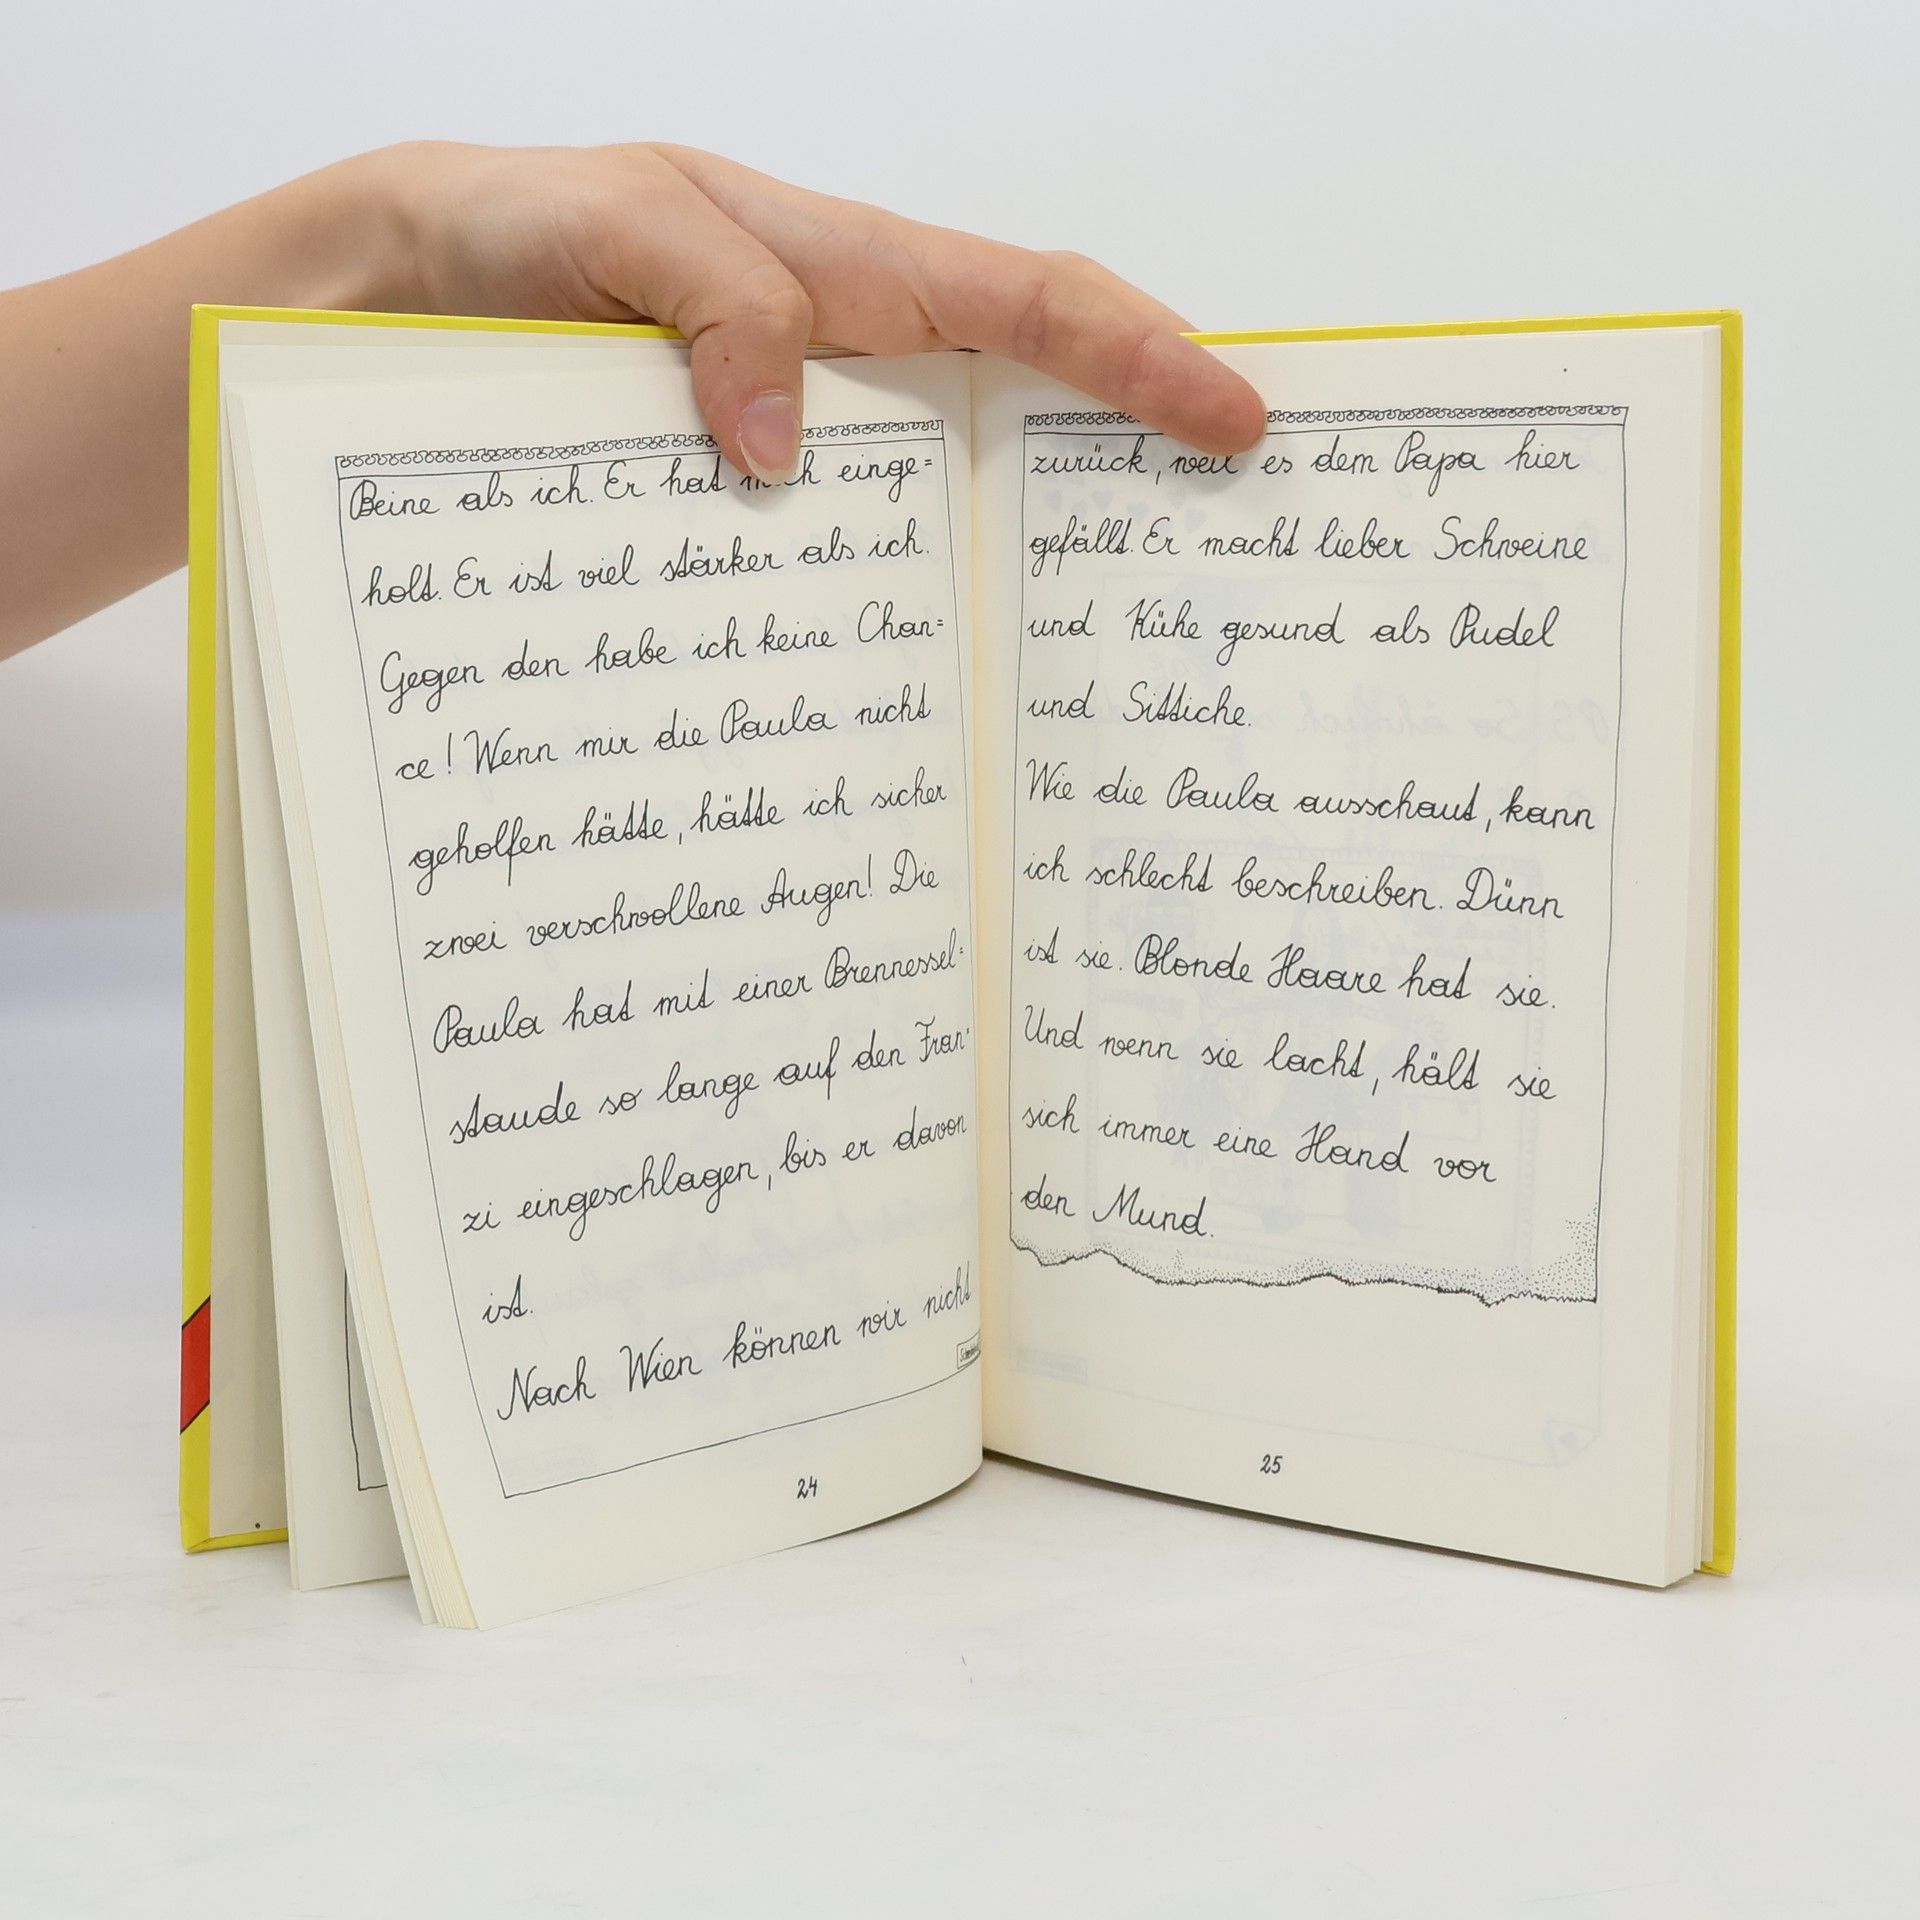 Beine als ich. Er hat mich einge=
holt. Er ist viel stärker als ich.
Gegen den habe ich keine Chan=
ce! Wenn mir die Paula nicht
geholfen hätte, hätte ich sicher
zwei verschwollene Augen! Die
Paula hat mit einer Brennessel=
staude so lange auf den Fran=
zi eingeschlagen, bis er davon
ist.
Nach Wien können wir nicht
24
zurück, weil es dem Papa hier
gefällt. Er macht lieber Schweine
und Kühe gesund als Pudel
und Sittiche.
Wie die Paula ausschaut, kann
ich schlecht beschreiben. Dünn
ist sie. Blonde Haare hat sie.
Und wenn sie lacht, hält sie
sich immer eine Hand vor
den Mund.
25